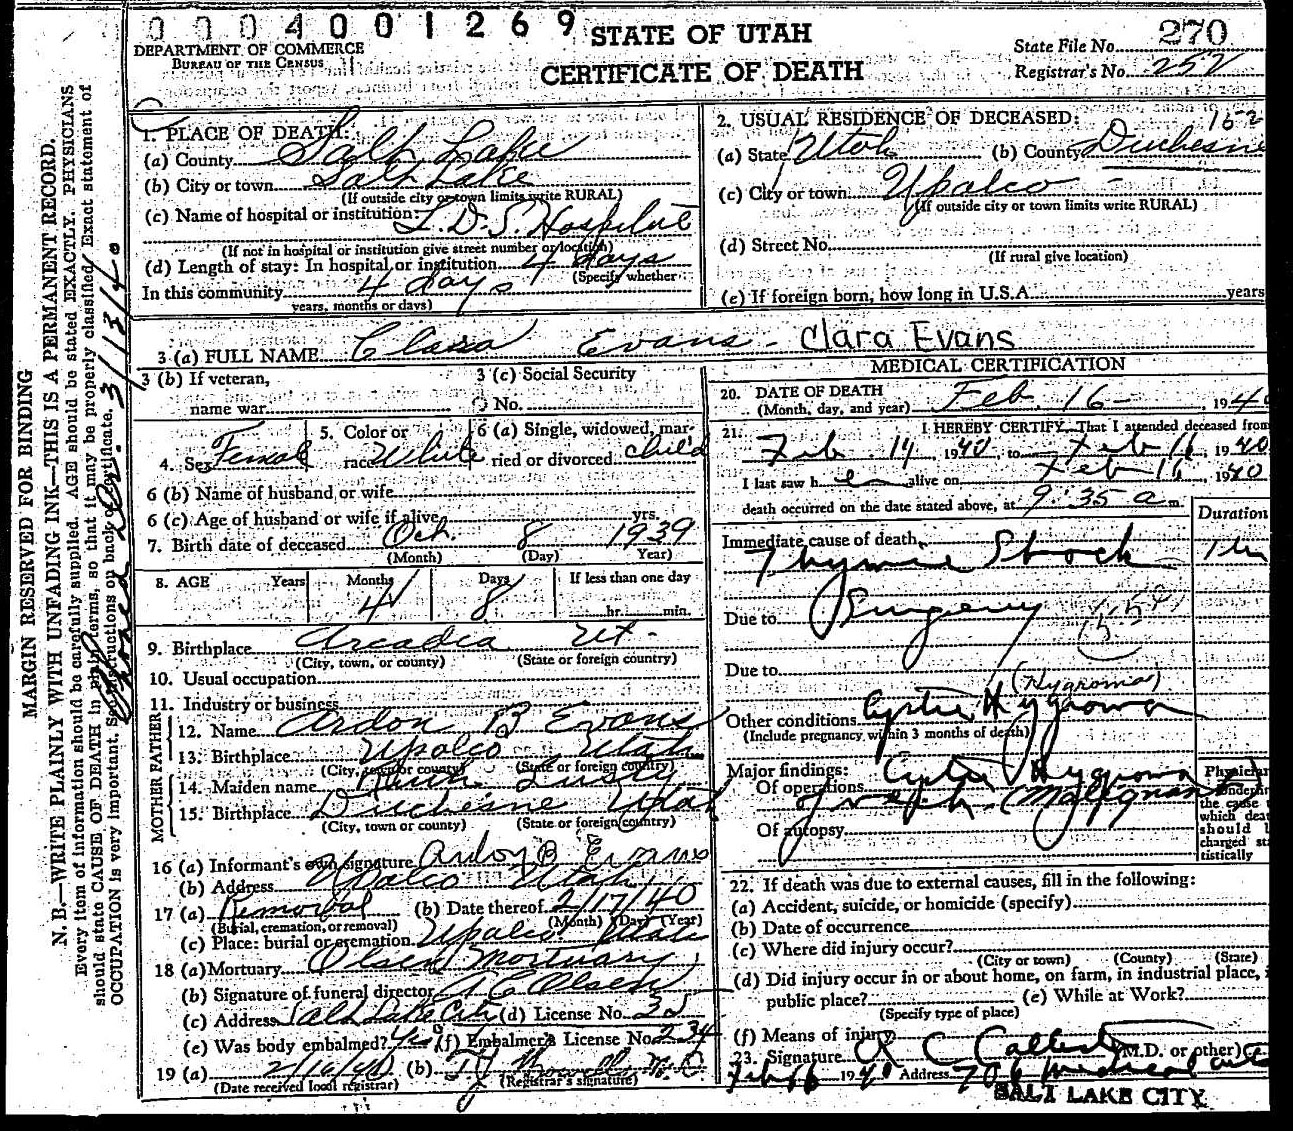 0 0 0 4 0 0 1 2 6 9
STATE OF UTAH
CERTIFICATE OF DEATH
DEPARTMENT OF COMMERCE
BUREAU OF THE CENSUS
State File No. 270
Registrar's No. 252
MARGIN RESERVED FOR BINDING
N. B.—WRITE PLAINLY WITH UNFADING INK—THIS IS A PERMANENT RECORD.
Every item of information should be carefully supplied. AGE should be stated EXACTLY. PHYSICIANS
should state CAUSE OF DEATH in plain terms, so that it may be properly classified. Exact statement of
OCCUPATION is very important. See instructions on back of certificate. 3/13/40
1. PLACE OF DEATH:
(a) County Salt Lake
(b) City or town Salt Lake
(If outside city or town limits write RURAL)
(c) Name of hospital or institution: L.D.S. Hospital
(If not in hospital or institution give street number or location)
(d) Length of stay: In hospital or institution 4 days
(Specify whether
In this community 4 days
years, months or days)
2. USUAL RESIDENCE OF DECEASED: 15-2
(a) State Utah (b) County Duchesne
(c) City or town Upalco
(If outside city or town limits write RURAL)
(d) Street No.
(If rural give location)
(e) If foreign born, how long in U.S.A. years
3 (a) FULL NAME Clara Evans - Clara Evans
3 (b) If veteran,
name war
3 (c) Social Security
No.
4. Sex Female
5. Color or
race White
6 (a) Single, widowed, mar-
ried or divorced child
6 (b) Name of husband or wife
6 (c) Age of husband or wife if alive yrs.
7. Birth date of deceased Oct. 8 1939
(Month) (Day) Year)
8. AGE Years Months Days If less than one day
4 8 hr. min.
9. Birthplace Arcadia Ut.
(City, town, or county) (State or foreign country)
10. Usual occupation
11. Industry or business
FATHER
12. Name Ardon B Evans
13. Birthplace Upalco Utah
(City, town or county) (State or foreign country)
MOTHER
14. Maiden name Lusty
15. Birthplace Duchesne Utah
(City, town or county) (State or foreign country)
16 (a) Informant's own signature Ardon B Evans
(b) Address Upalco Utah
17 (a) Removal (b) Date thereof 2/17/40
(Burial, cremation, or removal) (Month) (Day) (Year)
(c) Place: burial or cremation Upalco Utah
18 (a) Mortuary Olsen Mortuary
(b) Signature of funeral director A C Olsen
(c) Address Salt Lake City (d) License No.
(e) Was body embalmed? Yes (f) Embalmer's License No. 234
19 (a) 2/16/40 (b) M.D.
(Date received local registrar) (Registrar's signature)
MEDICAL CERTIFICATION
20. DATE OF DEATH
(Month, day, and year) Feb. 16 - , 1940
21. I HEREBY CERTIFY, That I attended deceased from
Feb 14 1940, to Feb 16, 1940
I last saw h er alive on Feb 16, 1940
death occurred on the date stated above, at 9:35 a m.
Duration
Immediate cause of death
Thymic Shock
Due to Surgery
Due to
(Hygroma)
Other conditions Cystic Hygroma
(Include pregnancy within 3 months of death)
Major findings:
Of operations Cystic Hygroma
(Malignant)
Of autopsy
Physician
Underline
the cause
which death
should
charged sta
tistically
22. If death was due to external causes, fill in the following:
(a) Accident, suicide, or homicide (specify)
(b) Date of occurrence
(c) Where did injury occur?
(City or town) (County) (State)
(d) Did injury occur in or about home, on farm, in industrial place,
public place? (e) While at Work?
(Specify type of place)
(f) Means of injury
23. Signature R C (M.D. or other)
Feb 16 1940 Address 706 Medical Arts
SALT LAKE CITY